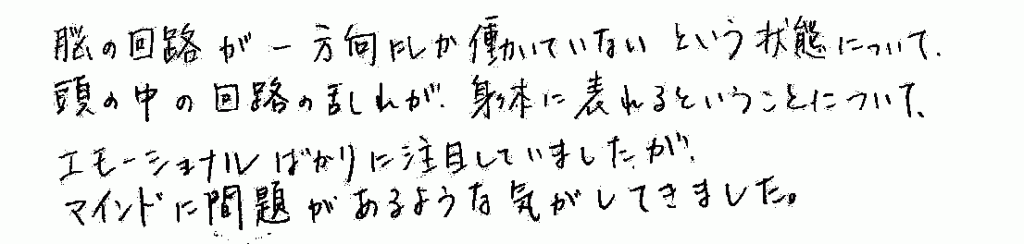 脳の回路が一方向にしか働いていないという状態について、
頭の中の回路の乱れが、身体に表れるということについて、
エモーショナルばかりに注目していましたが、
マインドに問題があるような気がしてきました。